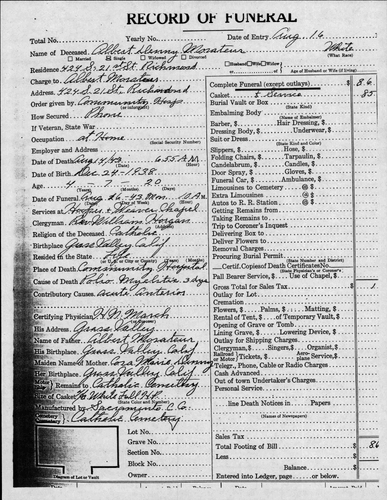 RECORD OF FUNERAL
Total No. Yearly No. Date of Entry Aug. 16
Name of Deceased Albert Denny Morateur White
(What Race)
Married Single Widowed Divorced
Residence 424 S. 21st St. Richmond
Husband Wife Widow
or
Age of Husband or Wife (if living)
Charge to Albert Morateur
Address 424 S. 21 St. Richmond
Order given by Community Hosp
How Secured Phone
If Veteran, State War
Occupation at Home
(Social Security Number)
Employer and Address
Date of Death Aug 14, 43 6:55 A.M.
Date of Birth Dec 24 - 1938
Age 4 - 7 - 20
Date of Funeral Aug 16-43
Services at Hooper & Weaver Chapel
Clergyman Rev William Horgan
Religion of the Deceased Catholic
Birthplace Grass Valley, Calif
Resided in the State Life
Place of Death Community Hospital
Cause of Death Polio Myelitis 3 days
Contributory Causes Acute Anterior
Certifying Physician H N Marsh
His Address Grass Valley
Name of Father Albert Morateur
His Birthplace Grass Valley, Calif
Maiden Name of Mother Marie Denny
Her Birthplace Grass Valley Calif
Remains to Catholic Cemetery
Size of Casket
(State Color and Number)
Manufactured by Sacramento C. Co.
Cemetery Catholic Cemetery
Lot No.
Grave No.
Section No.
Block No.
Owner
Diagram of Lot or Vault
Complete Funeral (except outlays) $ 86
Casket & Service 85
Burial Vault or Box
(State Kind)
Embalming Body
(State Kind)
Barber, Hair Dressing, $
Dressing Body, $ Underwear, $
Suit or Dress
(State Kind and Color)
Slippers, $ Hose, $
Folding Chairs, $ Tarpaulin, $
Candelabrum, $ Candles, $
Door Spray, $ Gloves, $
Funeral Car, $ Ambulance, $
Limousines to Cemetery @ $
Extra Limousines @ $
Autos to R. R. Station @ $
Getting Remains from
Taking Remains to
Trip to Coroner's Inquest
Delivering Box to
Deliver Flowers to
Removal Charges
Procuring Burial Permit
(State Number and District)
Certif. Copies of Death Certificates No.
(State Physician's or Coroner's)
Pall Bearer Service, $ Use of Chapel, $
Gross Total for Sales Tax $ 1
Outlay for Lot
Cremation
Flowers, $ Palms, $ Matting, $
Rental of Tent, $ of Temporary Vault, $
Opening of Grave or Tomb
Lining Grave, $ Lowering Device, $
Outlay for Shipping Charges
Clergyman, $ Singers, $ Organist, $
Railroad or Motor Tickets, $ Aeroplane Service, $
Telegr., Phone, Cable or Radio Charges
Cash Advanced
Out of town Undertaker's Charges
Personal Service
line Death Notices in Papers
(Names of Newspapers)
Sales Tax
Total Footing of Bill $ 86
Less
Balance $
Entered into Ledger, page or below.